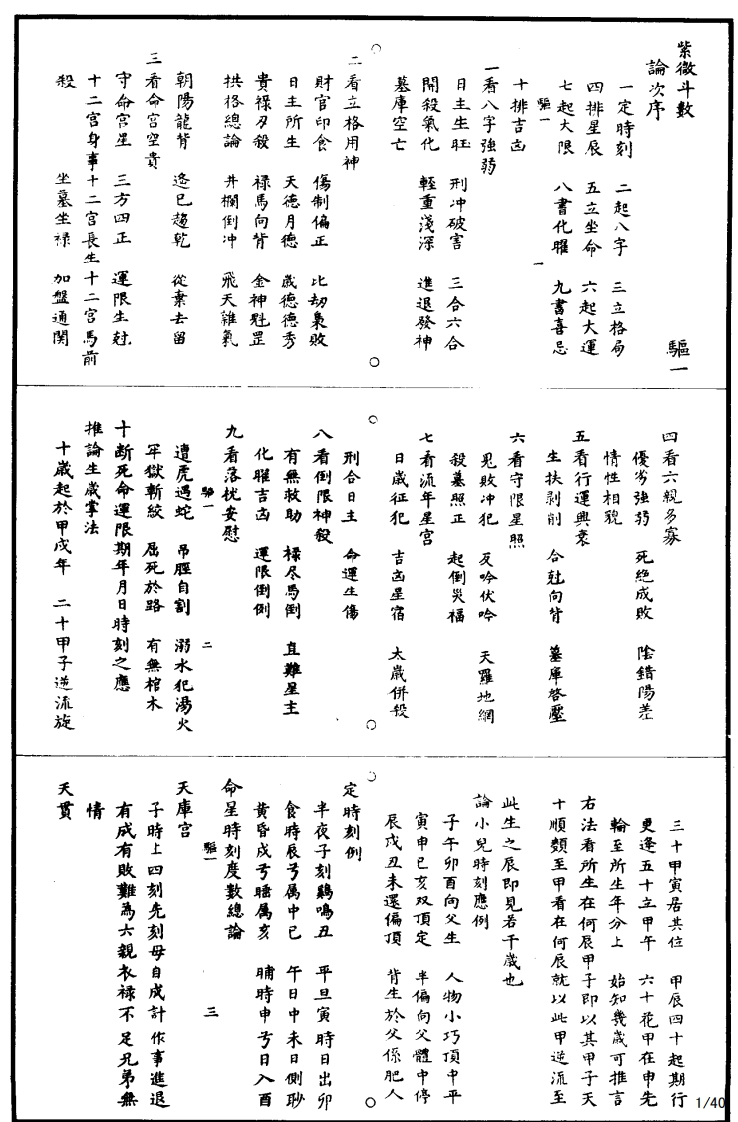 紫微斗数
論次序
驅一
一定時刻 二起八字 三立格局
四排星辰 五立坐命 六起大運
七起大限 八書化曜 九書喜忌
驅一 一
十排吉凶
一看八字強弱
日主生旺 刑冲破害 三合六合
開殺氣化 輕重淺深 進退發神
墓庫空亡
二看立格用神
財官印食 傷制偏正 比刼梟敗
日主所生 天德月德 歲德德秀
貴祿刃殺 禄馬向背 金神魁罡
拱格總論 井欄倒冲 飛天雜氣
朝陽龍背 逄巳趨乾 從棄去留
三看命宫空貴
守命宫星 三方四正 運限生尅
十二宫身事 十二宫長生 十二宫馬前
殺 坐墓坐禄 加盤通関
四看六親多寡
優劣強弱 死絶成敗 陰錯陽差
情性相貌
五看行運興衰
生扶剥削 合尅向背 墓庫啓壓
六看守限星照
見敗冲犯 反吟伏吟 天羅地網
殺墓照正 起倒災福
七看流年星宫
日歲征犯 吉凶星宿 太歲併殺
刑合日主 命運生傷
八看倒限神殺
有無救助 禄尽馬倒 直難星主
化曜吉凶 運限倒例
九看落扰安慰
遭虎遇蛇 吊脛自割 溺水犯湯火
驅一 二
牢獄斬絞 屈死於路 有無棺木
十断死命運限期年月日時刻之應
推論生歲掌法
十歲起於甲戌年 二十甲子逆流旋
三十甲寅居其位 甲辰四十起期行
更逢五十立甲午 六十花甲在申先
輪至所生年分上 始知幾歲可推言
右法看所生在何辰甲子即以其甲子天
十順顛至甲看在何辰就以此甲逆流至
此生之辰即見若干歲也
論小兒時刻應例
子午卯酉向父生 人物小巧頂中平
寅申巳亥双頂定 半偏向父體中停
辰戌丑未還偏頂 背生於父係肥人
定時刻例
半夜子刻鷄鳴丑 平旦寅時日出卯
食時辰兮属中巳 午日中未日側聁
黄昏戌兮睡属亥 晡時申兮日入酉
命星時刻度數總論
驅一 三
天庫宫
子時上四刻先刻母自成計 作事進退
有成有敗難為六親衣禄不足兄弟無
情
天貫
1/40